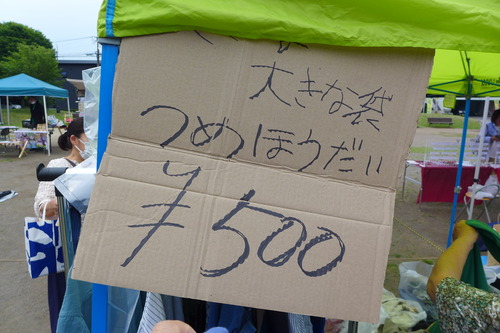 大きな袋
つめほうだい
¥500